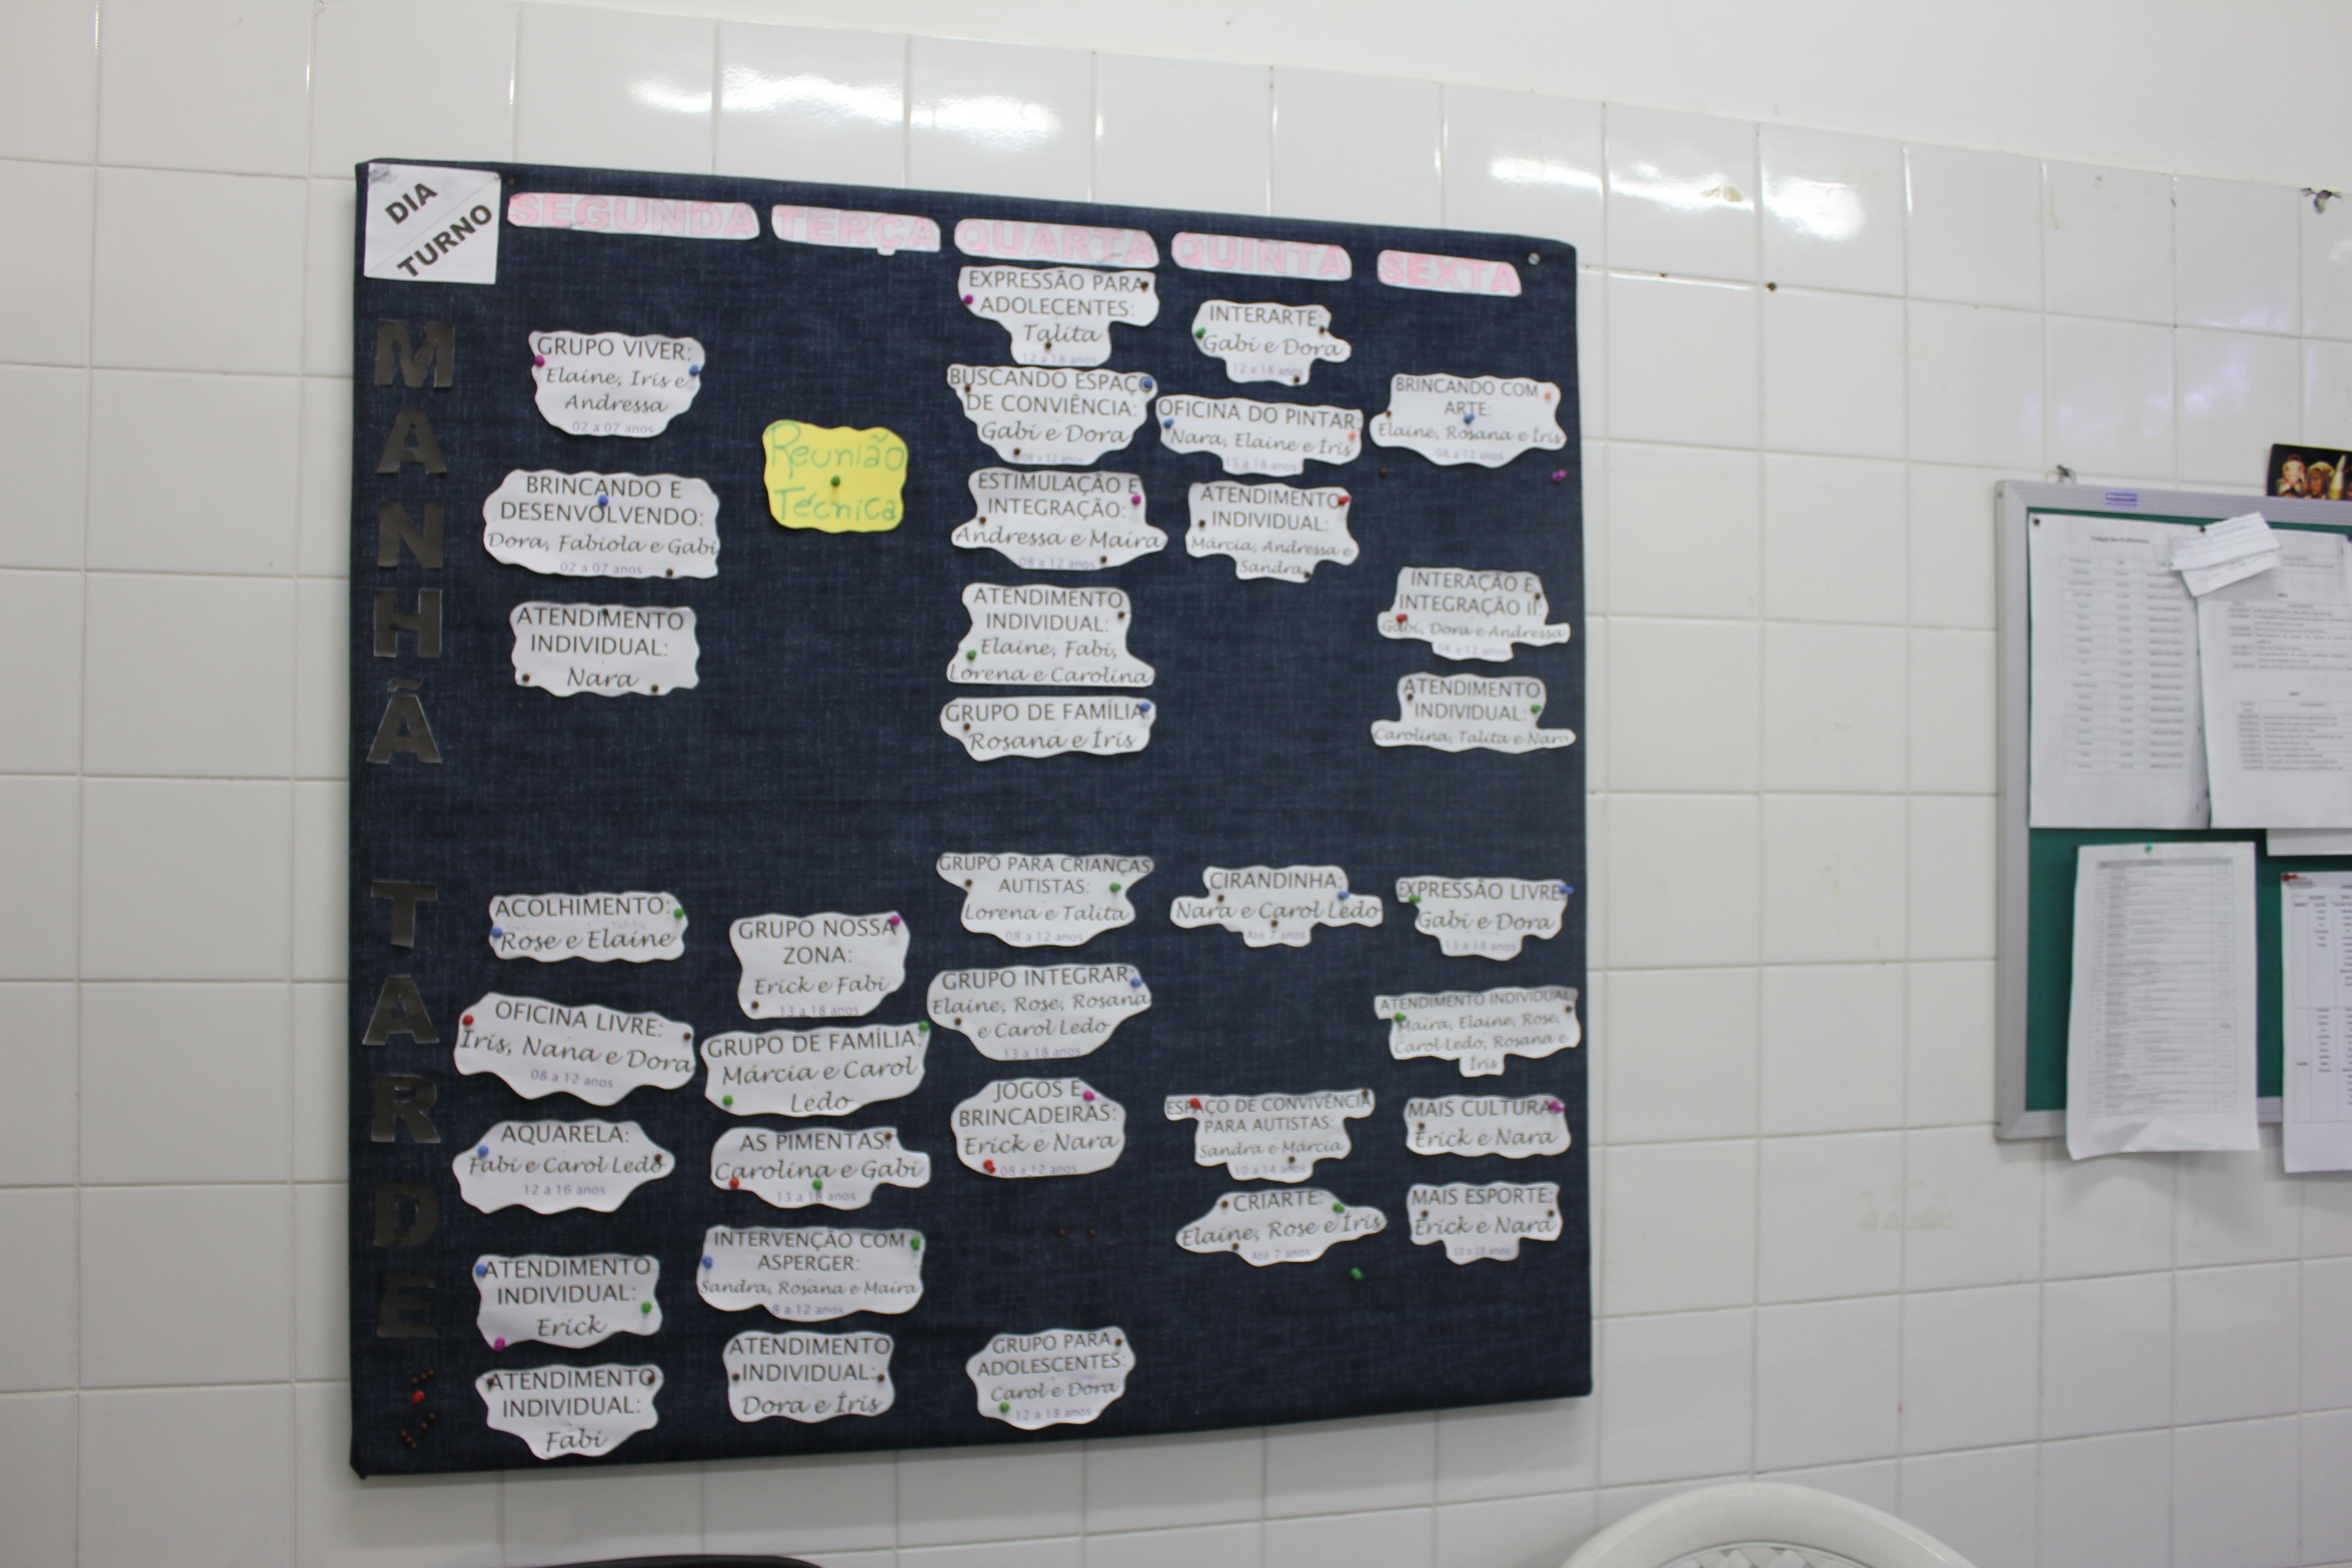 DIA
TURNO
SEGUNDA
TERÇA
QUARTA
QUINTA
SEXTA
MANHÃ
GRUPO VIVER:
Elaine, Iris e
Andressa
02 a 07 anos
BRINCANDO E
DESENVOLVENDO:
Dora, Fabiola e Gabi
02 a 07 anos
ATENDIMENTO
INDIVIDUAL:
Nara
Reunião
Técnica
EXPRESSÃO PARA
ADOLECENTES:
Talita
12 a 18 anos
BUSCANDO ESPAÇO
DE CONVIÊNCIA:
Gabi e Dora
08 a 12 anos
ESTIMULAÇÃO E
INTEGRAÇÃO:
Andressa e Maira
08 a 12 anos
ATENDIMENTO
INDIVIDUAL:
Elaine, Fabi,
Lorena e Carolina
GRUPO DE FAMÍLIA:
Rosana e Íris
INTERARTE:
Gabi e Dora
12 a 18 anos
OFICINA DO PINTAR:
Nara, Elaine e Íris
15 a 18 anos
ATENDIMENTO
INDIVIDUAL:
Márcia, Andressa e
Sandra
BRINCANDO COM
ARTE:
Elaine, Rosana e Íris
08 a 12 anos
INTERAÇÃO E
INTEGRAÇÃO II:
Gabi, Dora e Andressa
08 a 12 anos
ATENDIMENTO
INDIVIDUAL:
Carolina, Talita e Nara
TARDE
ACOLHIMENTO:
Rose e Elaine
OFICINA LIVRE:
Iris, Nana e Dora
08 a 12 anos
AQUARELA:
Fabi e Carol Ledo
12 a 16 anos
ATENDIMENTO
INDIVIDUAL:
Erick
ATENDIMENTO
INDIVIDUAL:
Fabi
GRUPO NOSSA
ZONA:
Erick e Fabi
13 a 18 anos
GRUPO DE FAMÍLIA:
Márcia e Carol
Ledo
AS PIMENTAS:
Carolina e Gabi
13 a 18 anos
INTERVENÇÃO COM
ASPERGER:
Sandra, Rosana e Maira
8 a 12 anos
ATENDIMENTO
INDIVIDUAL:
Dora e Íris
GRUPO PARA CRIANÇAS
AUTISTAS:
Lorena e Talita
08 a 12 anos
GRUPO INTEGRAR:
Elaine, Rose, Rosana
e Carol Ledo
13 a 18 anos
JOGOS E
BRINCADEIRAS:
Erick e Nara
08 a 12 anos
GRUPO PARA
ADOLESCENTES:
Carol e Dora
12 a 18 anos
CIRANDINHA:
Nara e Carol Ledo
Até 7 anos
ESPAÇO DE CONVIVÊNCIA
PARA AUTISTAS:
Sandra e Márcia
10 a 14 anos
CRIARTE:
Elaine, Rose e Íris
Até 7 anos
EXPRESSÃO LIVRE:
Gabi e Dora
13 a 18 anos
ATENDIMENTO INDIVIDUAL:
Maira, Elaine, Rose,
Carol Ledo, Rosana e
Íris
MAIS CULTURA:
Erick e Nara
MAIS ESPORTE:
Erick e Nara
13 a 18 anos